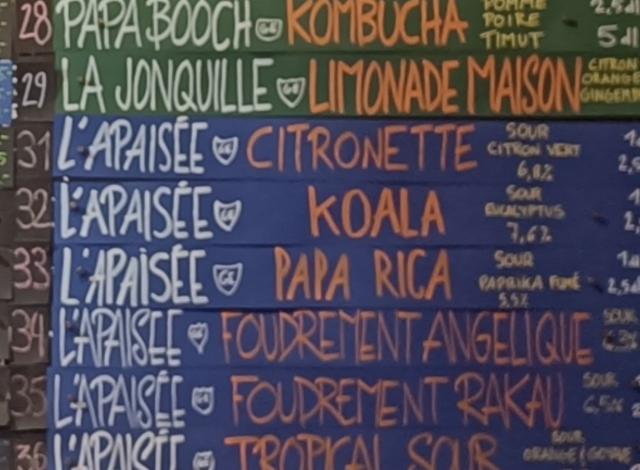 28 PAPA BOOCH GE KOMBUCHA POMME POIRE TIMUT 5dl
29 LA JONQUILLE GE LIMONADE MAISON CITRON ORANGE GINGEMB
31 L'APAISÉE GE CITRONETTE SOUR CITRON VERT
32 L'APAISÉE GE KOALA SOUR EUCALYPTUS 7,6%
33 L'APAISÉE GE PAPA RICA SOUR PAPRIKA FUMÉ 5,5%
34 L'APAISÉE FOUDREMENT ANGELIQUE SOUR
35 L'APAISÉE GE FOUDREMENT RAKAU SOUR
36 L'APAISÉE TROPICAL SOUR SOUR ORANGE